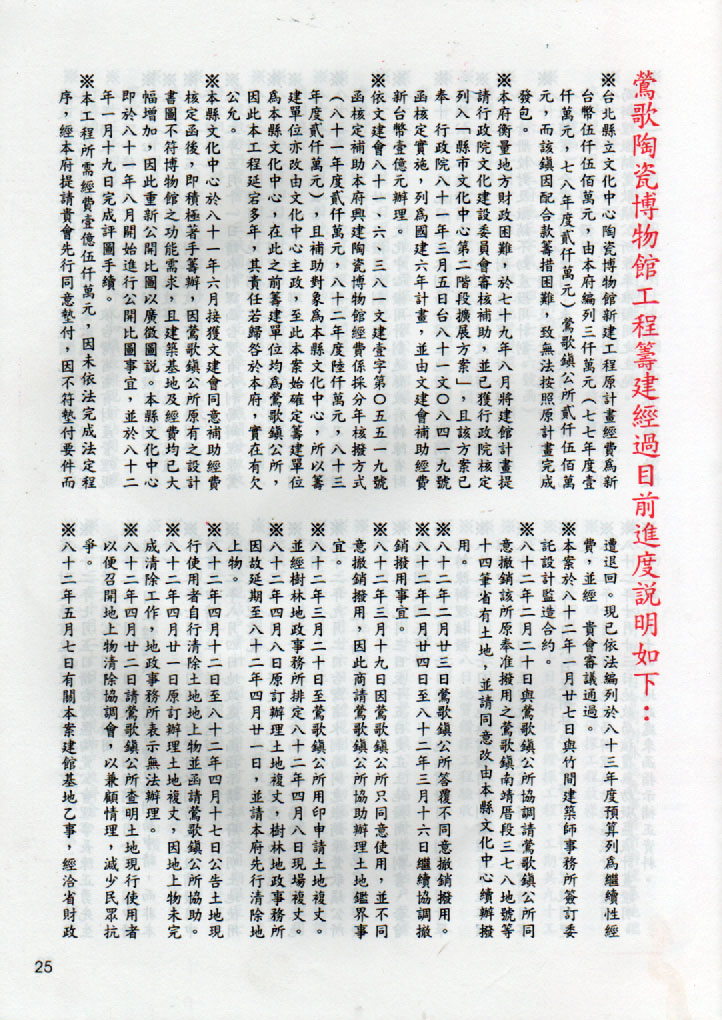 鶯歌陶瓷博物館工程籌建經過目前進度說明如下：
※台北縣立文化中心陶瓷博物館新建工程原計畫經費爲新
台幣伍仟伍佰萬元，由本府編列三仟萬元（七七年度壹
仟萬元，七八年度貳仟萬元）鶯歌鎮公所貳仟伍佰萬
元，而該鎮因配合款籌措困難，致無法按照原計畫完成
發包。
※本府衡量地方財政困難，於七十九年八月將建館計畫提
請行政院文化建設委員會審核補助，並已獲行政院核定
列入「縣市文化中心第二階段擴展方案」，且該方案已
奉　行政院八十一年三月五日台八十一文〇八四一九號
函核定實施，列爲國建六年計畫，並由文建會補助經費
新台幣壹億元辦理。
※依文建會八十一、六、三八一文建壹字第〇五五一九號
函核定補助本府興建陶瓷博物館經費係採分年核撥方式
（八十一年度貳仟萬元，八十二年度陸仟萬元，八十三
年度貳仟萬元），且補助對象爲本縣文化中心，所以籌
建單位亦改由文化中心主政，至此本案始確定籌建單位
爲本縣文化中心，在此之前籌建單位均爲鶯歌鎮公所，
因此本工程延宕多年，其責任若歸咎於本府，實在有欠
公允。
※本縣文化中心於八十一年六月接獲文建會同意補助經費
核定函後，即積極著手籌辦，因鶯歌鎮公所原有之設計
書圖不符博物館之功能需求，且建築基地及經費均已大
幅增加，因此重新公開比圖以廣徵圖說。本縣文化中心
即於八十一年八月開始進行公開比圖事宜，並於八十二
年一月十九日完成評圖手續。
※本工程所需經費壹億伍仟萬元，因未依法完成法定程
序，經本府提請貴會先行同意墊付，因不符墊付要件而
遭退回。現已依法編列於八十三年度預算列爲繼續性經
費，並經　貴會審議通過。
※本案於八十二年一月廿七日與竹間建築師事務所簽訂委
託設計監造合約。
※八十二年二月二十日與鶯歌鎮公所協調請鶯歌鎮公所同
意撤銷該所原奉准撥用之鶯歌鎮南靖厝段三七八地號等
十四筆省有土地，並請同意改由本縣文化中心續辦撥
用。
※八十二年二月廿三日鶯歌鎮公所答覆不同意撤銷撥用。
※八十二年二月廿四日至八十二年三月十六日繼續協調撤
銷撥用事宜。
※八十二年三月十九日因鶯歌鎮公所只同意使用，並不同
意撤銷撥用，因此商請鶯歌鎮公所協助辦理土地鑑界事
宜。
※八十二年三月二十日至鶯歌鎮公所用印申請土地複丈。
並經樹林地政事務所排定八十二年四月八日現場複丈。
※八十二年四月八日原訂辦理土地複丈，樹林地政事務所
因故延期至八十二年四月廿一日，並請本府先行清除地
上物。
※八十二年四月十二日至八十二年四月十七日公告土地現
行使用者自行清除土地地上物並函請鶯歌鎮公所協助。
※八十二年四月廿一日原訂辦理土地複丈，因地上物未完
成清除工作，地政事務所表示無法辦理。
※八十二年四月廿二日請鶯歌鎮公所查明土地現行使用者
以便召開地上物清除協調會，以兼顧情理，減少民眾抗
爭。
※八十二年五月七日有關本案建館基地乙事，經洽省財政
25